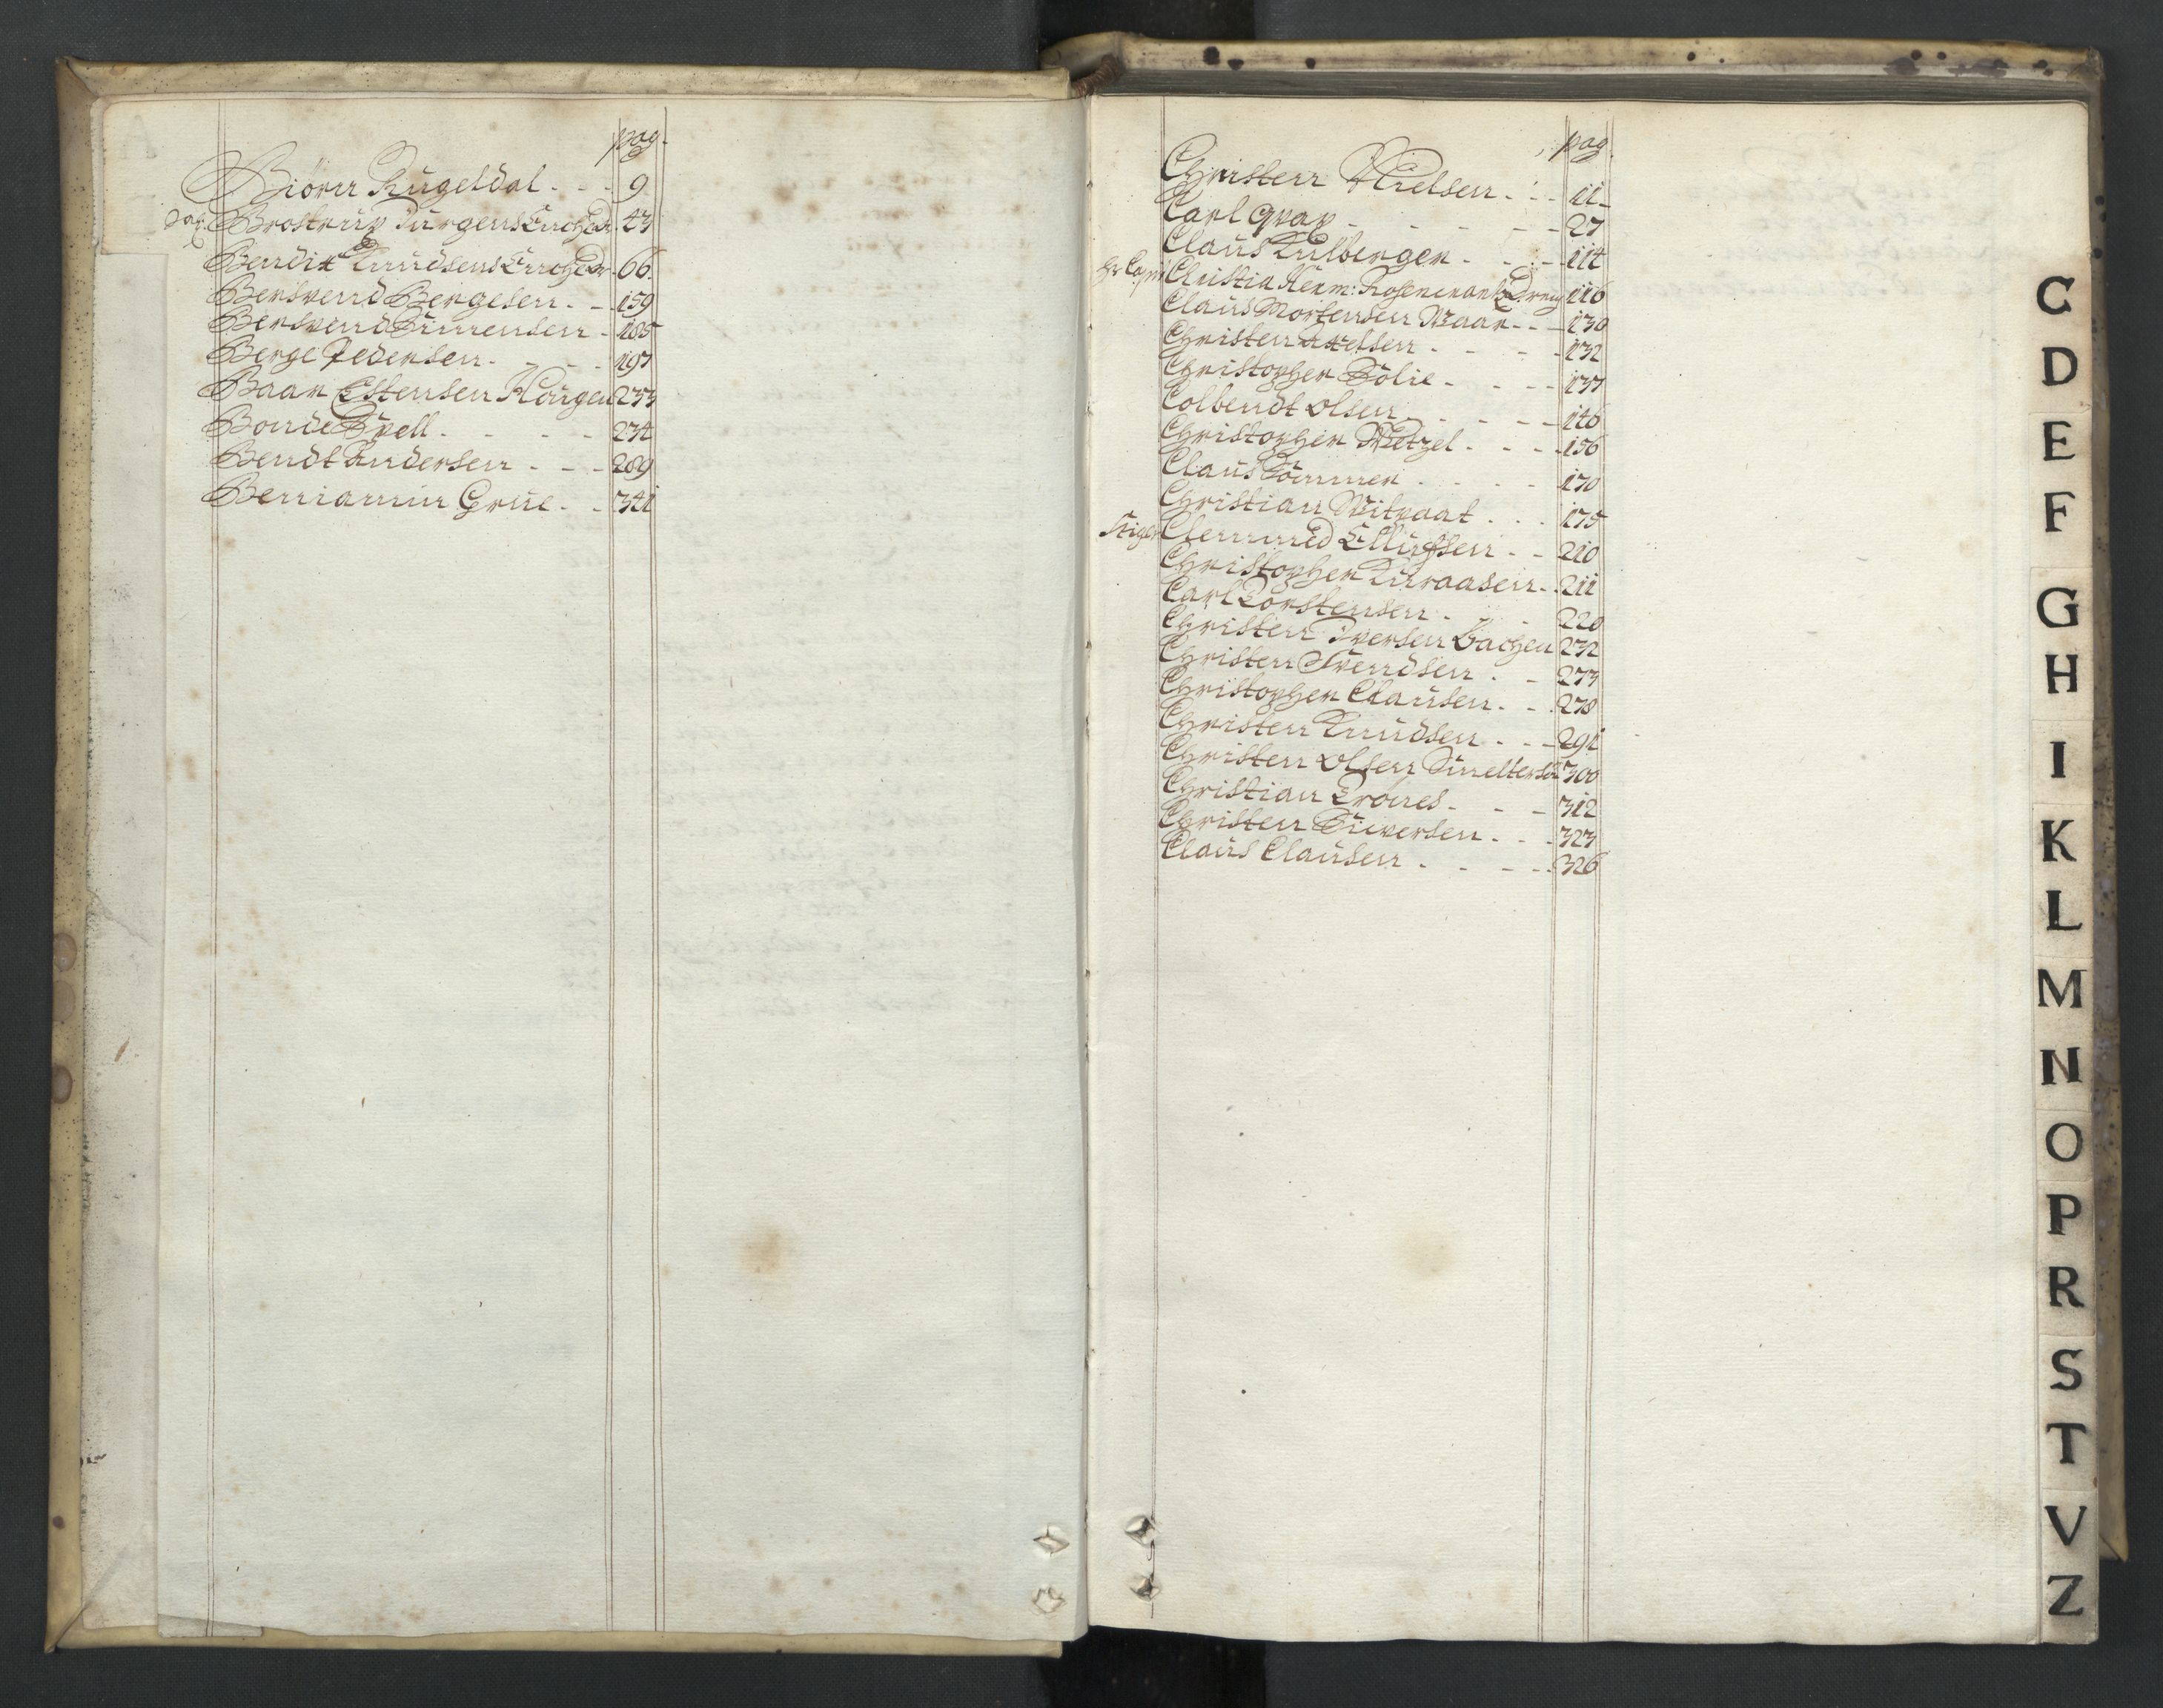 pag.
Biörn Rugeldal. - - 9
Brostrup Jürgens Enche 43
Bendix Knudsens Enche 66.
Bersvend Børgesen. - 159
Bersvend Simensen - 185
Børge Pedersen. - - . 197
Baar Estensen Hougen 233
Bonde Spell. - - - - 234
Bendt Andersen - - - 289
Beniamin Grue. - . 341
pag.
Christen Nielsen. . - 11-
Carl Qvap - - - - - 27
Claus Kulberger. - . - - 114
Hr Capt: Christia Herm: Rosencrantz 116
Claus Mortensen Maar. - - - 130
Christen Axelsen . - - - 132
Christopher Tolie. - - - - 137
Colbendt Olsen. - - - - - 146
Christopher Wetzel. - - - - 156
Claus Tommer . . - - - 170
Christian Witpaat . . . 175
Stiger Clemmed Ellingsen - - 210
Christopher Knraasen. - . 211
Carl Torstensen . - - 220
Christen Iversen Bachen 232
Christen Svendsen . - 273
Christopher Clausen. - . 278
Christen Knudsen . - - - 291
Christen Olsen Smeltersön 300
Christian Trones. - - - 312
Christen Siversen. - - . 323
Claus Clausen . - - - - 326
C
D
E
F
G
H
I
K
L
M
N
O
P
R
S
T
V
Z